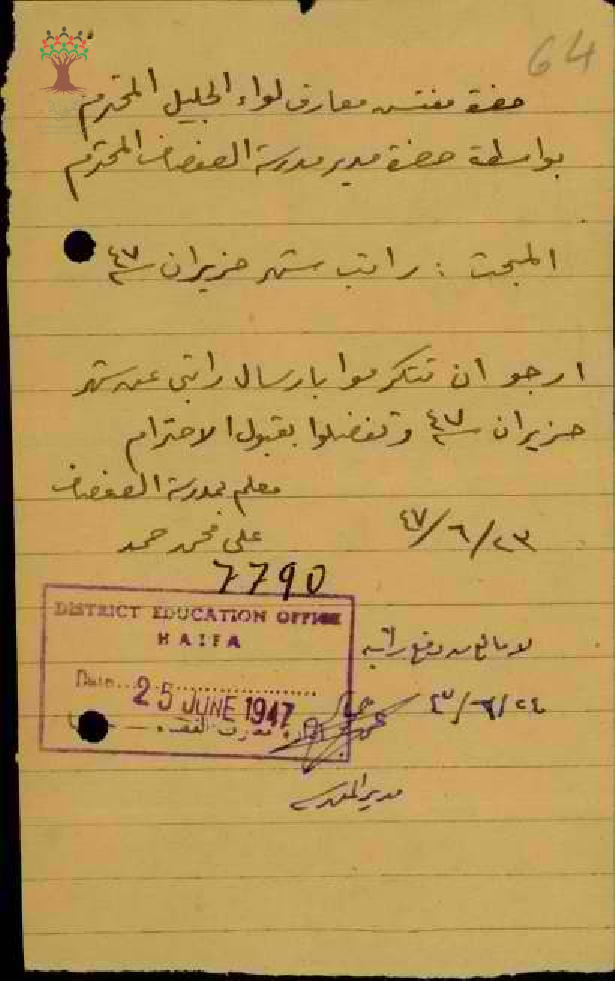 64
حضرة مفتش معارف لواء الجليل المحترم
بواسطة حضرة مدير مدرسة الصفصاف المحترم
المبحث : راتب شهر حزيران سنة ٤٧
ارجو ان تتكرموا بارسال راتبي عن شهر
حزيران سنة ٤٧ وتفضلوا بقبول الاحترام
معلم بمدرسة الصفصاف
٢٣/٦/٤٧
علي محمد حمد
7790
DISTRICT EDUCATION OFFICE
HAIFA
Date 25 JUNE 1947
لا مانع من دفع راتبه
مدير المدرسة